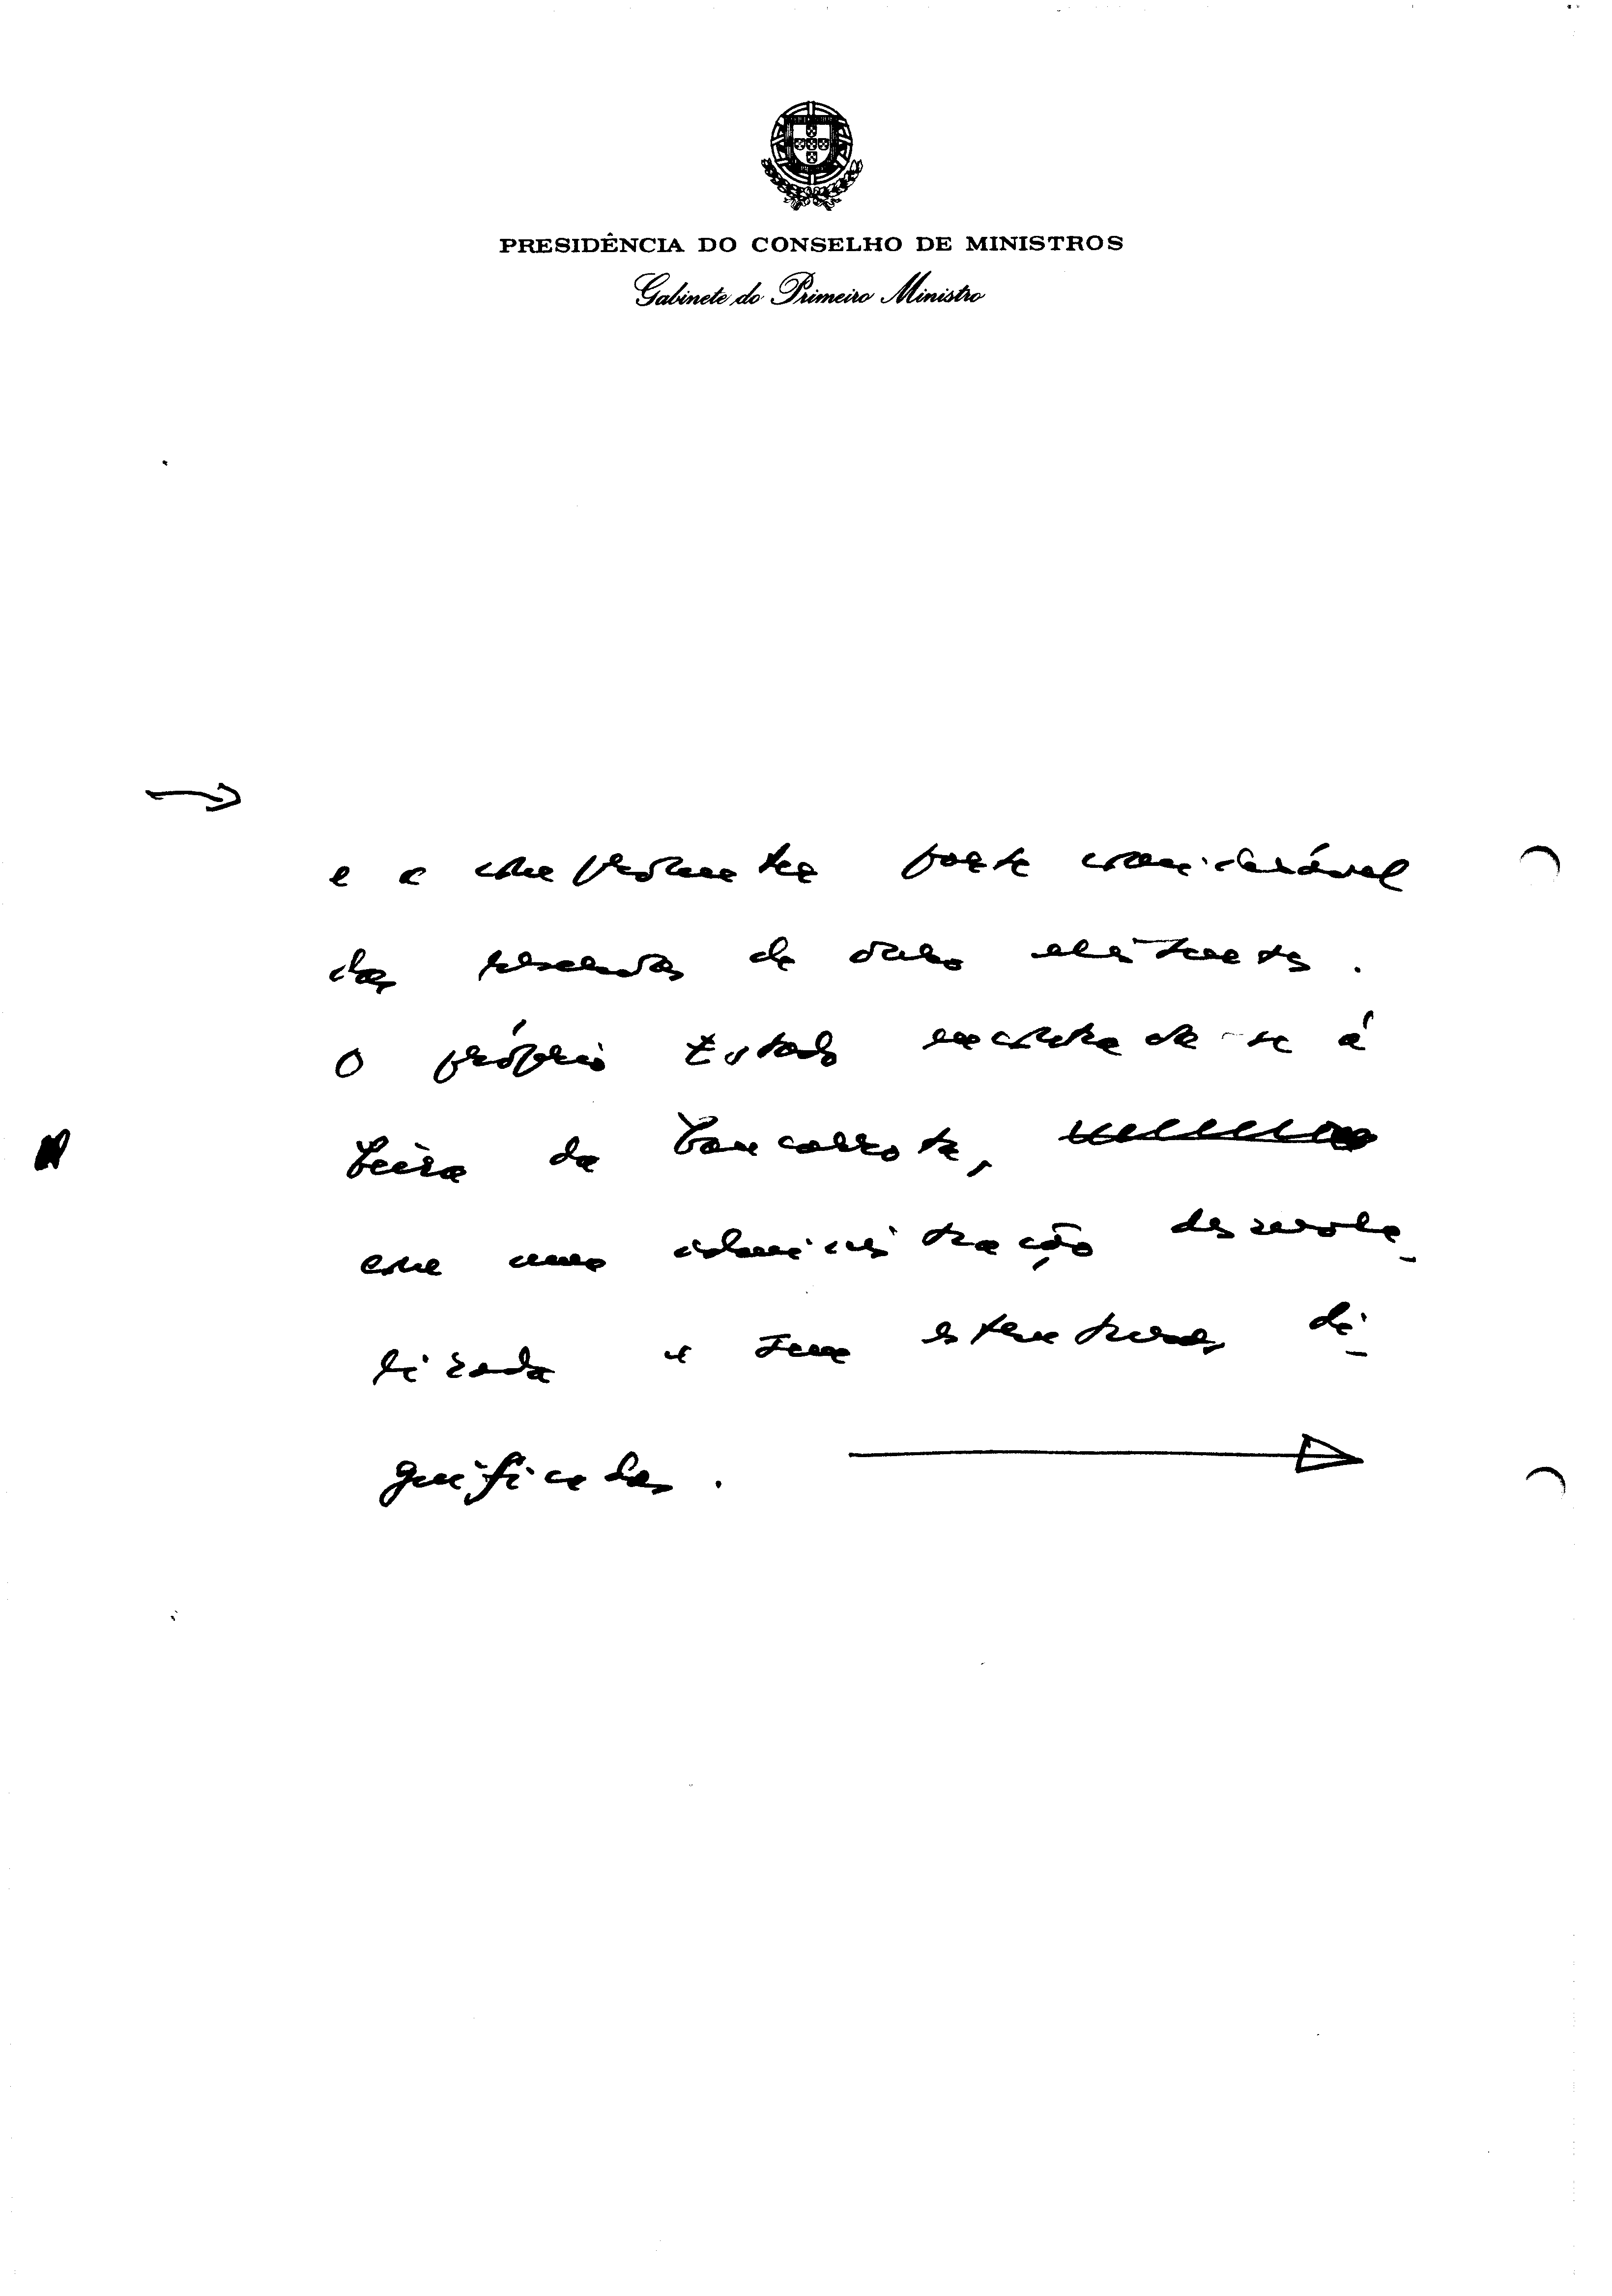 PRESIDÊNCIA DO CONSELHO DE MINISTROS
Gabinete do Primeiro Ministro
e a comprometer parte considerável
das reservas de ouro existentes.
O próprio Estado encontra-se à
beira da bancarrota,
com uma administração desmora-
lizada e sem estruturas di-
gnificadas.